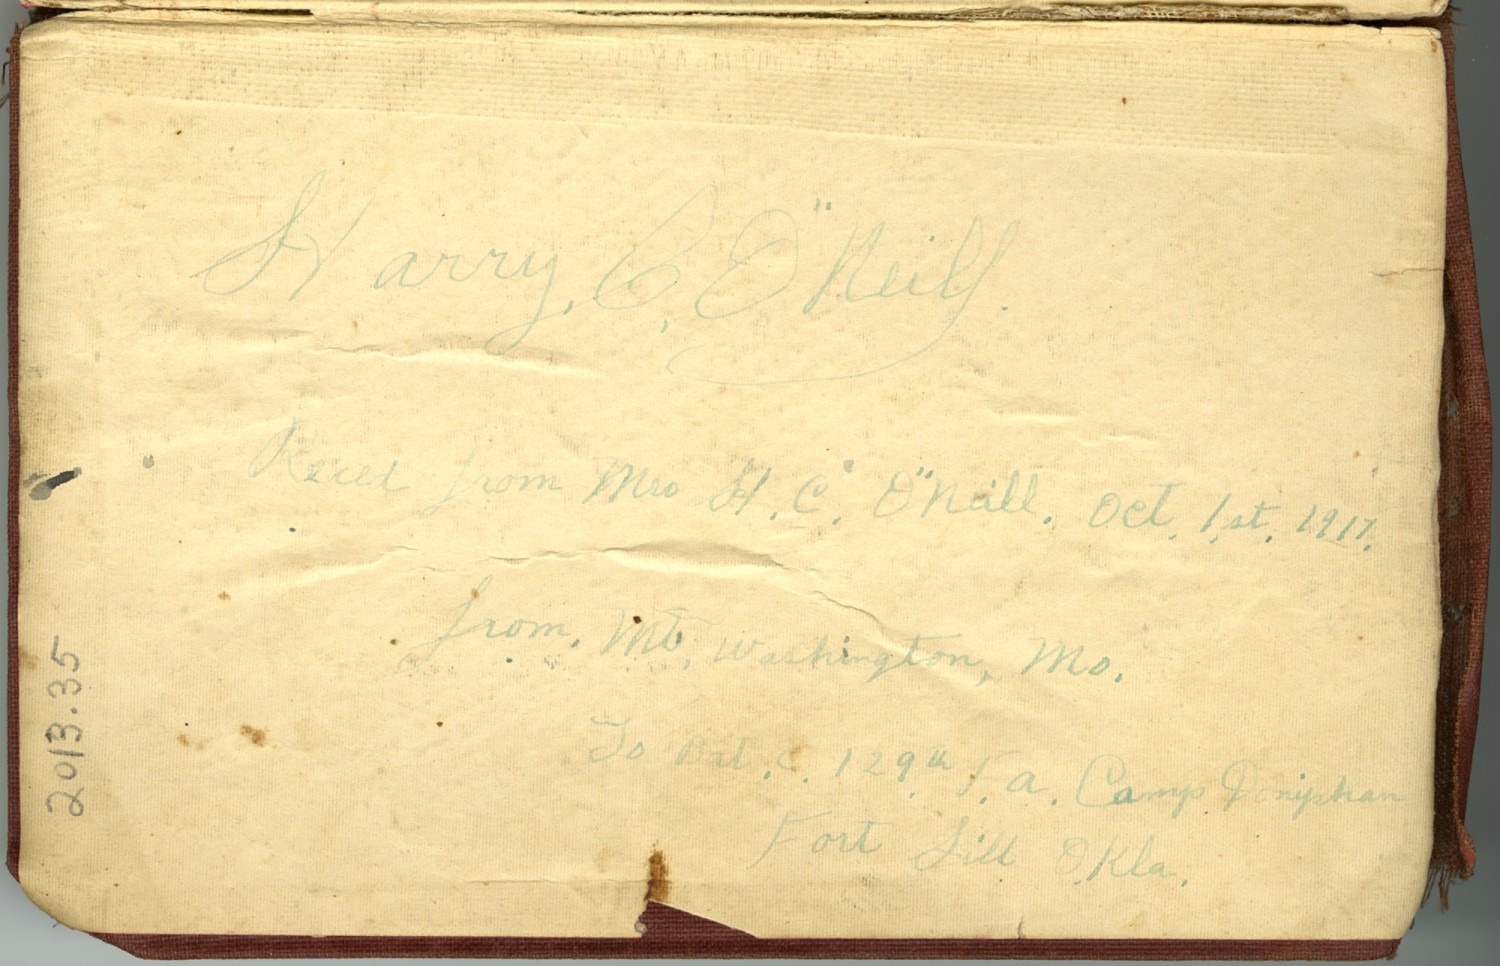 Harry, C, O"Neill.
Reced from Mrs H. C. O"Neill. Oct. 1st. 1917.
from. Mt. Washington, Mo.
To Bat. C. 129th F. a. Camp Doniphan
Fort Sill Okla.
2013.35